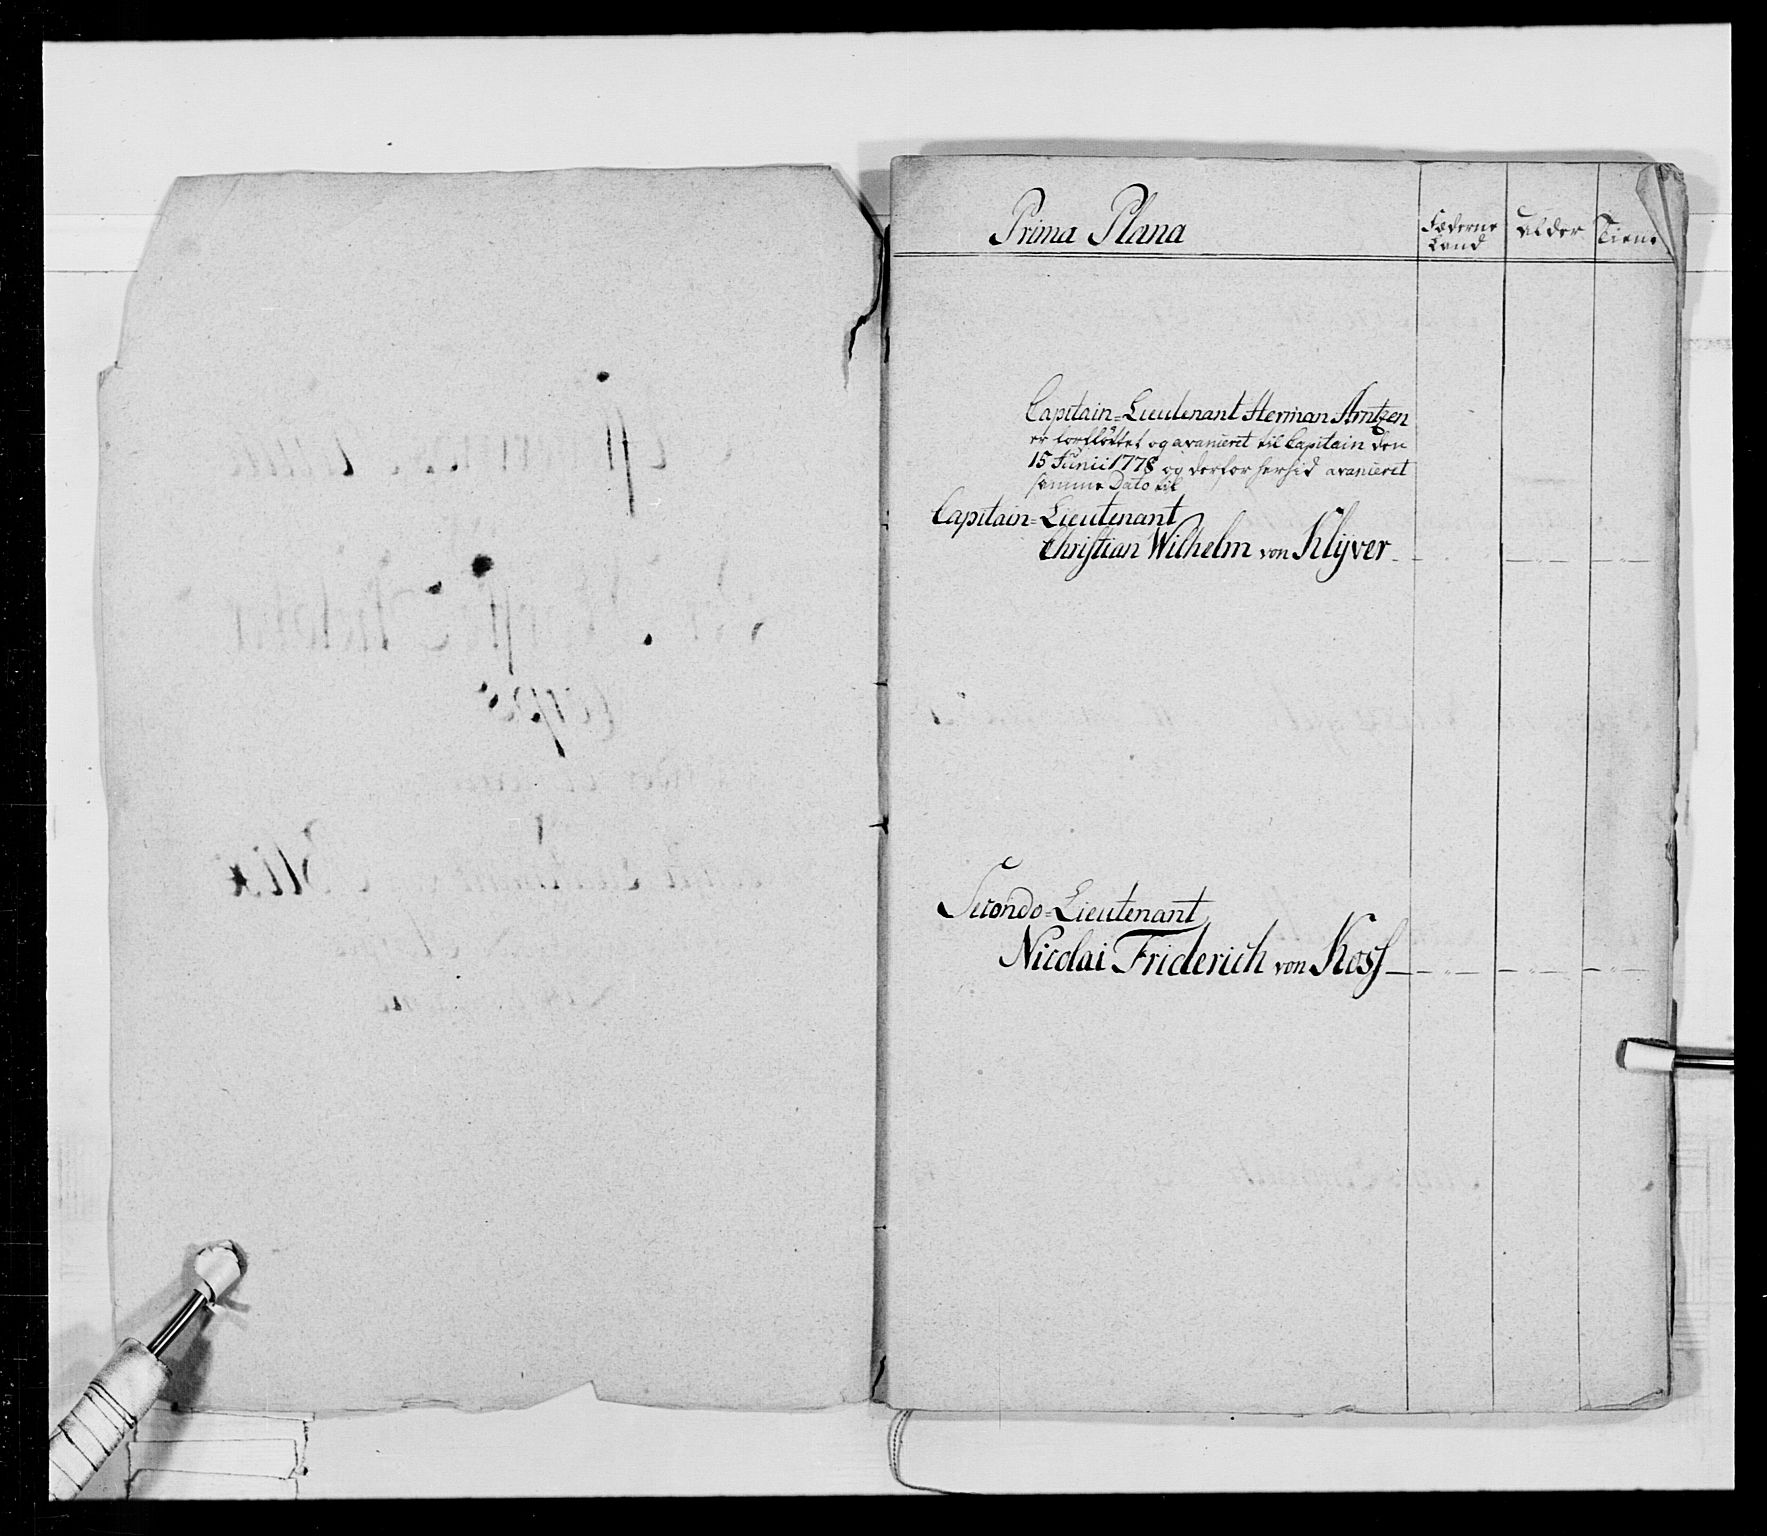 Prima Plana
Fæderne
Land
Alder
Tiene
Capitain=Lieutenant Herman Arntzen
er forflöttet og avanieret til Capitain den
15 Junii 1778 og derfor herhid avancieret
samme Dato til
Capitain=Lieutenant
Christian Wilhelm von Klÿver
Secondo=Lieutenant
Nicolai Friderich von Koss